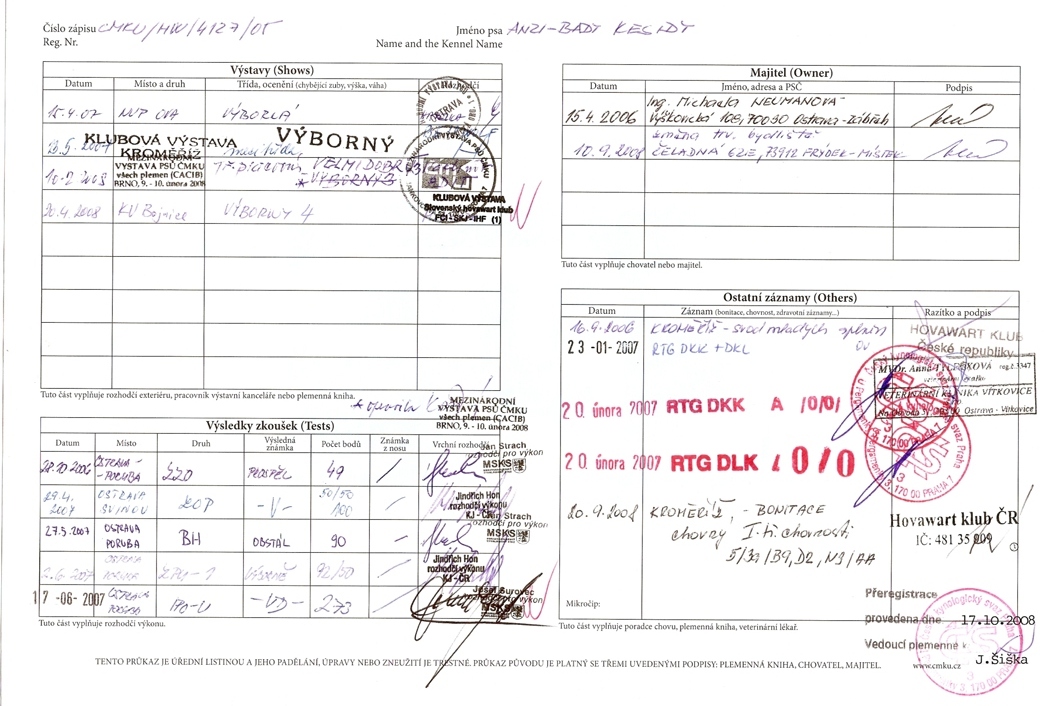 Číslo zápisu CMKU/HW/4127/05
Reg. Nr.
Jméno psa ANZI-BADY KESIDY
Name and the Kennel Name
Výstavy (Shows)
Datum Místo a druh Třída, ocenění (chybějící zuby, výška, váha)
15.4.07 NVP OVA VÝBORLÁ
KLUBOVÁ VÝSTAVA
KROMĚŘÍŽ
VÝBORNÝ
MEZINÁRODNÍ
VÝSTAVA PSŮ ČMKU
všech plemen (CACIB)
BRNO, 9. - 10. února 2008
VELMI DOBRÁ
10.2.2008
20.4.2008 KV Bojnice VÝBORNÝ 4
KLUBOVÁ VÝSTAVA
Slovenský hovawart klub
FCI-SKJ-IHF (1)
Tuto část vyplňuje rozhodčí exteriéru, pracovník výstavní kanceláře nebo plemenná kniha.
MEZINÁRODNÍ
VÝSTAVA PSŮ ČMKU
všech plemen (CACIB)
BRNO, 9. - 10. února 2008
Výsledky zkoušek (Tests)
Datum Místo Druh Výsledná známka Počet bodů Známka z nosu Vrchní rozhodčí
28.10.2006 OSTRAVA - PORUBA ZZO PROSPĚL 49 /
Jan Strach
rozhodčí pro výkon
MSKS
29.4. 2007 OSTRAVA SVINOV ZOP -V- 50/50 100 /
Jindřich Hon
rozhodčí výkonu
KJ-ČR
27.5.2007 OSTRAVA PORUBA BH OBSTÁL 90 /
Jan Strach
rozhodčí pro výkon
MSKS
2.6.2007 OSTRAVA PORUBA ZPU-1 VÝBORNĚ 92/50 /
Jindřich Hon
rozhodčí výkonu
KJ-ČR
17-06-2007 OSTRAVA PORUBA IPO-V -VD- 273 /
Josef Surovec
rozhodčí pro výkon
MSKS
Tuto část vyplňuje rozhodčí výkonu.
Majitel (Owner)
Datum Jméno, adresa a PSČ Podpis
15.4.2006 Ing. Michaela NEUMANOVÁ
Výškovická 108, 70030 Ostrava-Zábřeh
změna trv. bydliště
10.9.2008 ČELADNÁ 628, 73912 FRÝDEK-MÍSTEK
Tuto část vyplňuje chovatel nebo majitel.
Ostatní záznamy (Others)
Datum Záznam (bonitace, chovnost, zdravotní záznamy...) Razítko a podpis
16.9.2006 KROMĚŘÍŽ - svod mladých splnin
HOVAWART KLUB
České republiky
23-01-2007 RTG DKK + DKL OV
MVDr. Anna
reg.č.3347
VETERINÁRNÍ KLINIKA VÍTKOVICE
Ostrava - Vítkovice
20 února 2007 RTG DKK A /0/0/
20 února 2007 RTG DLK L 0/0
20.9.2008 KROMĚŘÍŽ, - BONITACE
chovný I.tř. chovnosti
5/3a/B9, D2, N3/AA
Hovawart klub ČR
IČ: 481 35 909
Mikročip:
Přeregistrace
provedena dne 17.10.2008
Vedoucí plemenné k
J.Šiška
www.cmku.cz
Tuto část vyplňuje poradce chovu, plemenná kniha, veterinární lékař.
TENTO PRŮKAZ JE ÚŘEDNÍ LISTINOU A JEHO PADĚLÁNÍ, ÚPRAVY NEBO ZNEUŽITÍ JE TRESTNÉ. PRŮKAZ PŮVODU JE PLATNÝ SE TŘEMI UVEDENÝMI PODPISY: PLEMENNÁ KNIHA, CHOVATEL, MAJITEL.